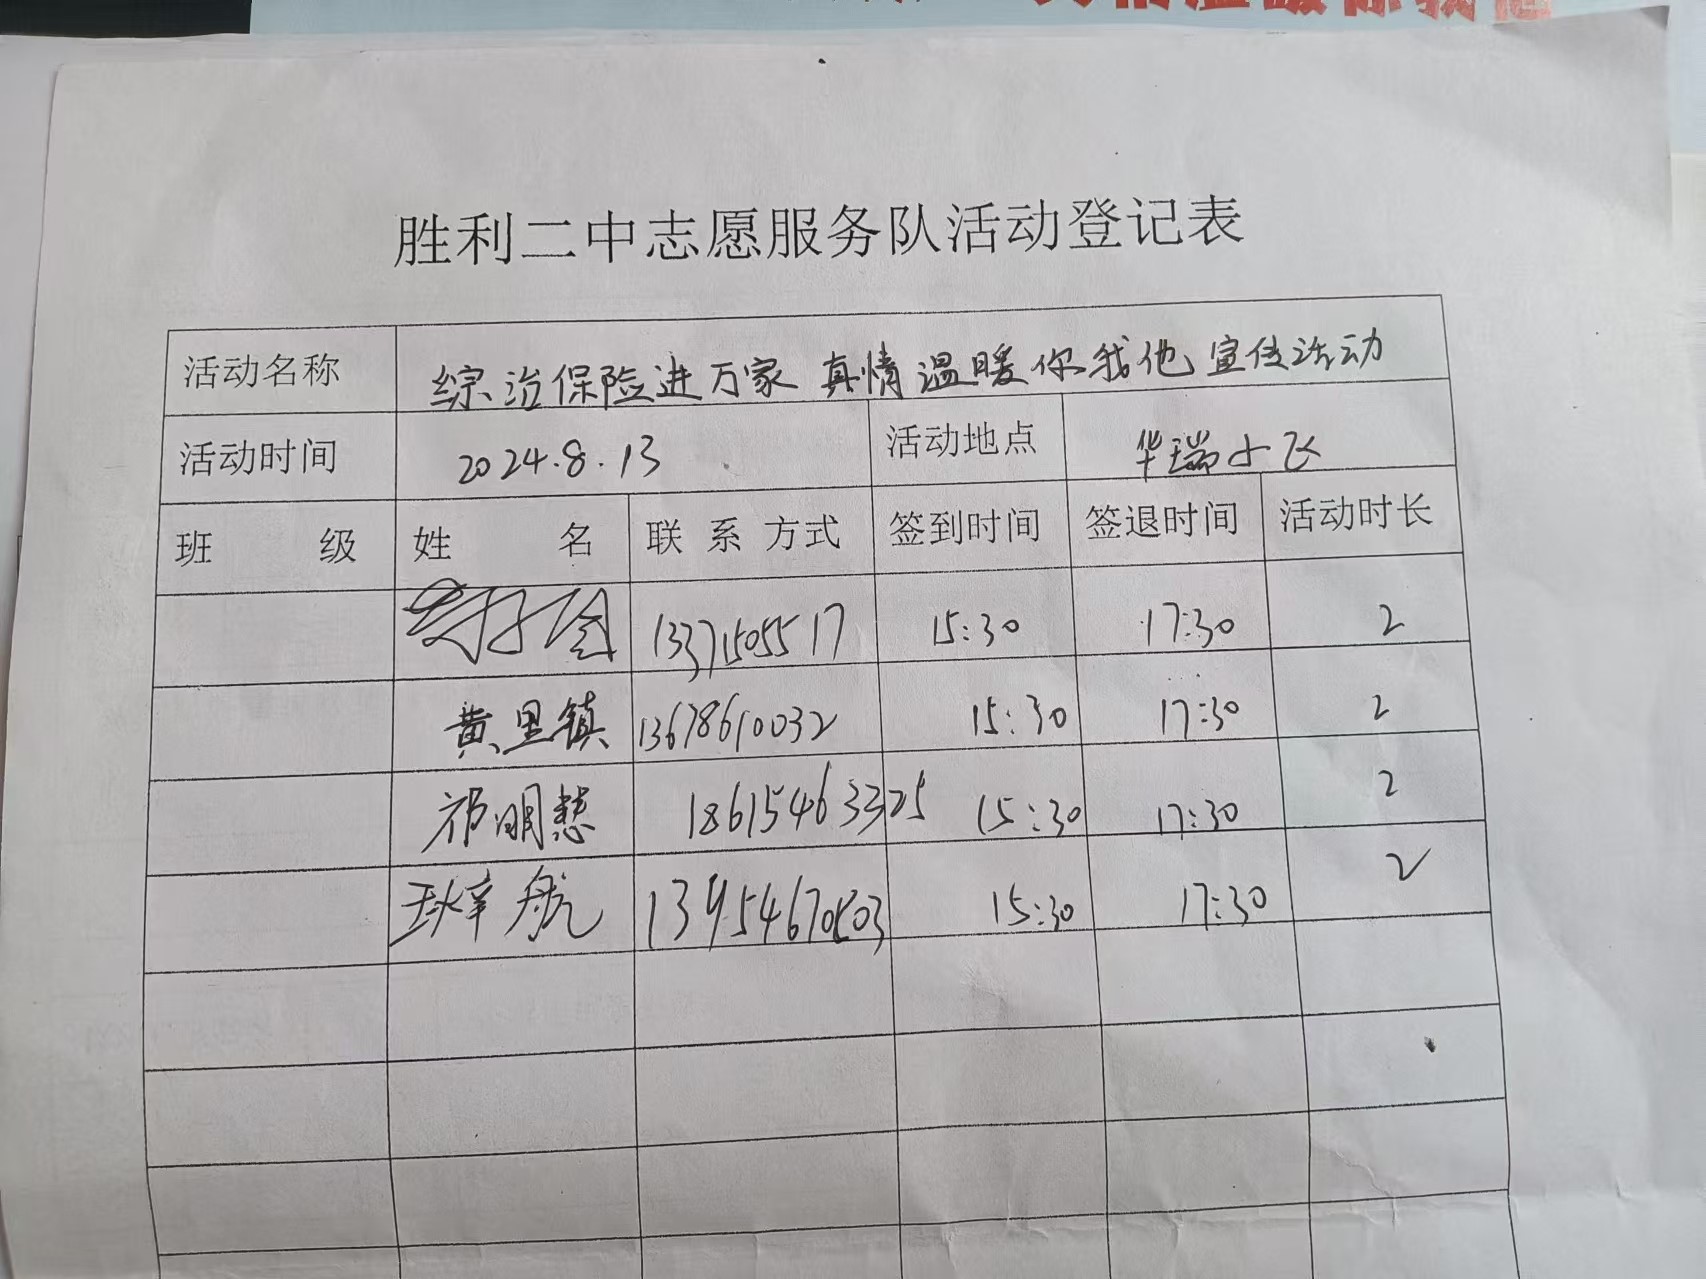 真情温暖你我他
胜利二中志愿服务队活动登记表
活动名称 综治保险进万家 真情温暖你我他宣传活动
活动时间 2024.8.13 活动地点 华瑞小区
班 级 姓 名 联系方式 签到时间 签退时间 活动时长
13371505517 15:30 17:30 2
黄里镇 13678610032 15:30 17:30 2
祁明慧 18615463325 15:30 17:30 2
航 15:30 17:30 2